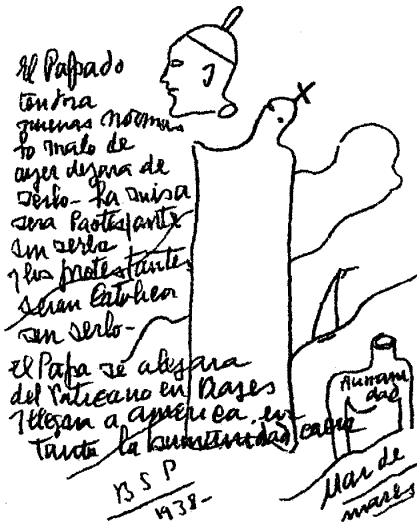 El Papado
tendra
nuevas normas
lo malo de
ayer dejara de
serlo- La misa
sera Protestante
sin serlo
y los protestantes
seran Catolicos
sin serlo-
El Papa se alejara
del Vaticano en Viajes
y llegara a America en
tanto la humanidad caera
BSP
1938-
Humani
dad
Mar de
mares